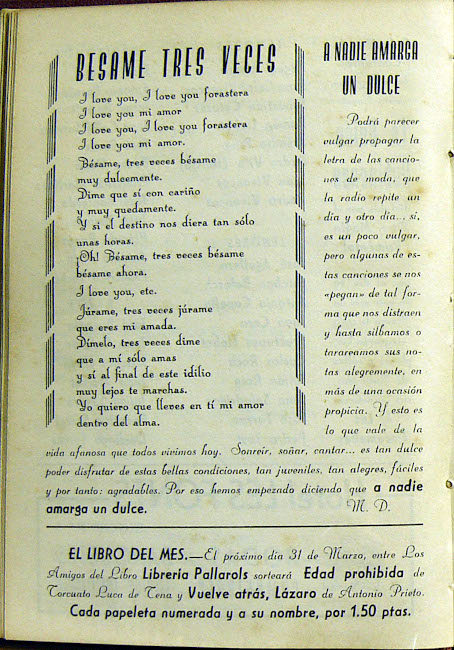 BESAME TRES VECES
I love you, I love you forastera
I love you mi amor
I love you, I love you forastera
I love you mi amor.
Bésame, tres veces bésame
muy dulcemente.
Dime que sí con cariño
y muy quedamente.
Y si el destino nos diera tan sólo
unas horas.
¡Oh! Bésame, tres veces bésame
bésame ahora.
I love you, etc.
Júrame, tres veces júrame
que eres mi amada.
Dímelo, tres veces dime
que a mí sólo amas
y sí al final de este idilio
muy lejos te marchas.
Yo quiero que lleves en tí mi amor
dentro del alma.
A NADIE AMARGA
UN DULCE
Podrá parecer
vulgar propagar la
letra de las cancio-
nes de moda, que
la radio repite un
día y otro día... sí,
es un poco vulgar,
pero algunas de es-
tas canciones se nos
«pegan» de tal for-
ma que nos distraen
y hasta silbamos o
tarareamos sus no-
tas alegremente, en
más de una ocasión
propicia. Y esto es
lo que vale de la
vida afanosa que todos vivimos hoy. Sonreir, soñar, cantar... es tan dulce
poder disfrutar de estas bellas condiciones, tan juveniles, tan alegres, fáciles
y por tanto: agradables. Por eso hemos empezado diciendo que a nadie
amarga un dulce. M. D.
EL LIBRO DEL MES.—El próximo día 31 de Marzo, entre Los
Amigos del Libro Librería Pallarols sorteará Edad prohibida de
Torcuato Luca de Tena y Vuelve atrás, Lázaro de Antonio Prieto.
Cada papeleta numerada y a su nombre, por 1.50 ptas.